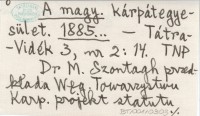 A magy. kárpátegye-
sület. 1885... — Tátra-
-Vidék 3, nr 2: 14. TNP
Dr M. Szontagh przed-
kłada Węg. Towarzystwu
Karp. projekt statutu